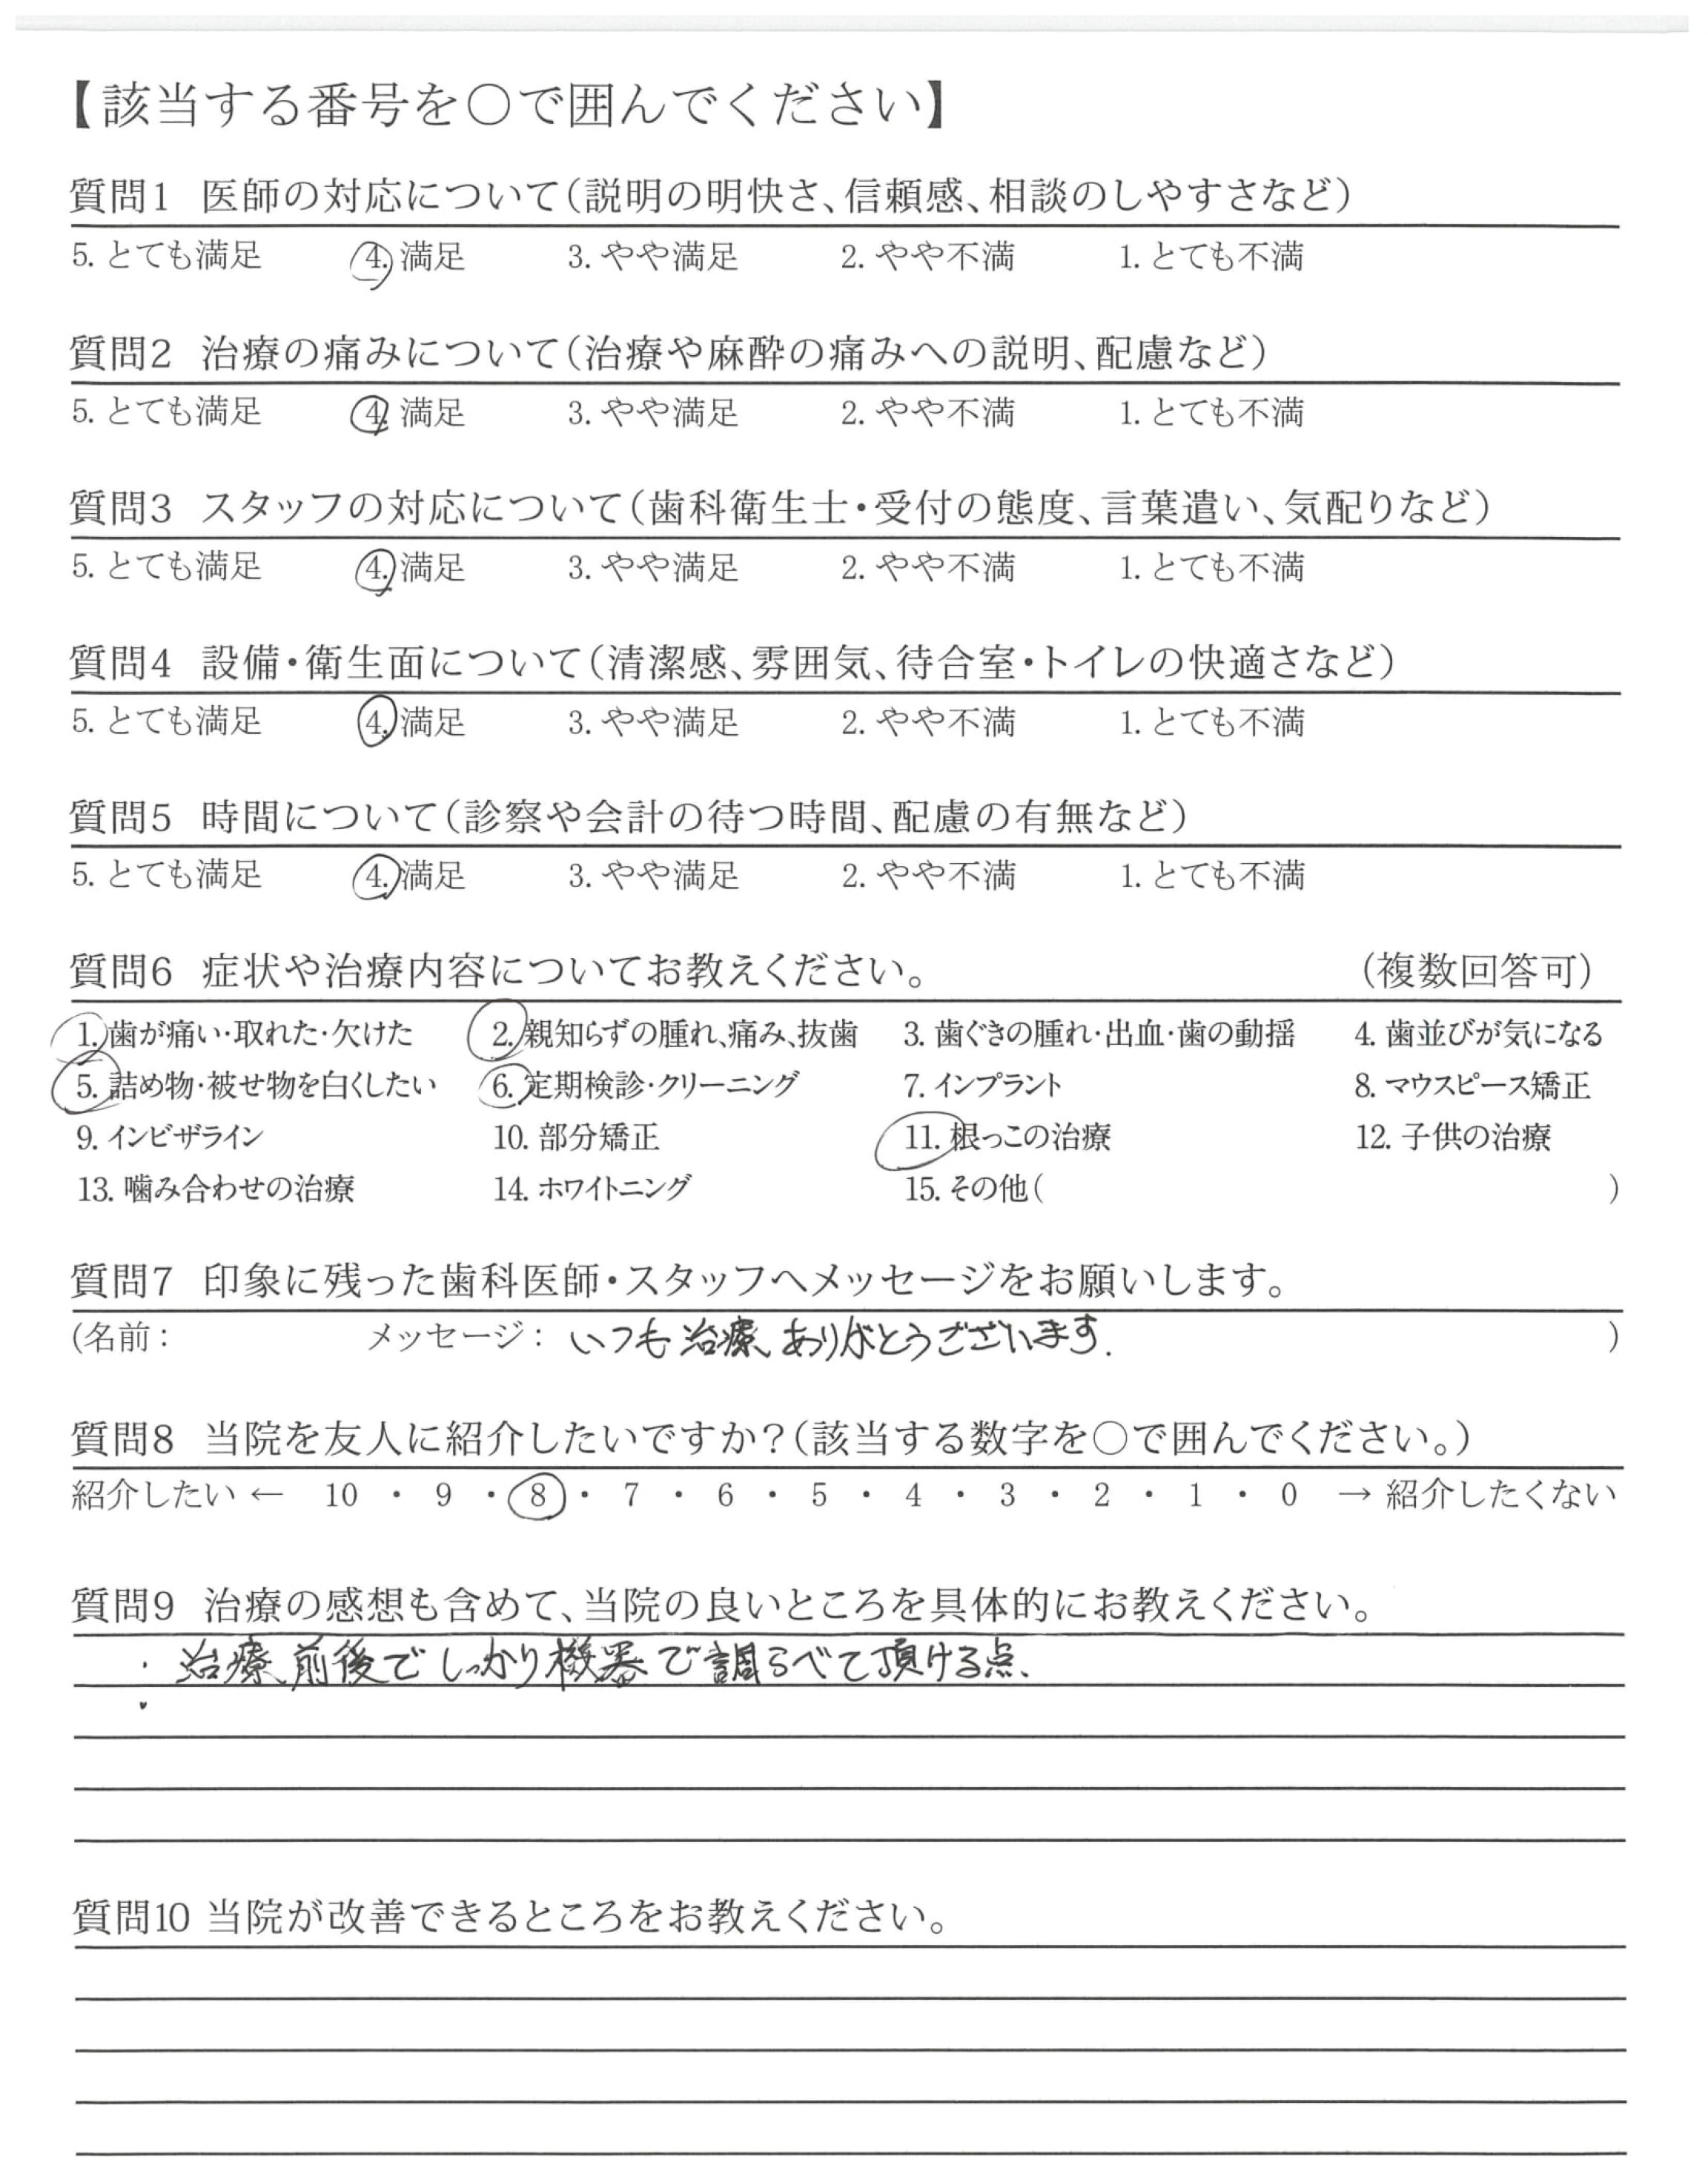 【該当する番号を○で囲んでください】
質問1 医師の対応について(説明の明快さ、信頼感、相談のしやすさなど)
5. とても満足 4. 満足 3. やや満足 2. やや不満 1. とても不満
質問2 治療の痛みについて(治療や麻酔の痛みへの説明、配慮など)
5. とても満足 4. 満足 3. やや満足 2. やや不満 1. とても不満
質問3 スタッフの対応について(歯科衛生士・受付の態度、言葉遣い、気配りなど)
5. とても満足 4. 満足 3. やや満足 2. やや不満 1. とても不満
質問4 設備・衛生面について(清潔感、雰囲気、待合室・トイレの快適さなど)
5. とても満足 4. 満足 3. やや満足 2. やや不満 1. とても不満
質問5 時間について(診察や会計の待つ時間、配慮の有無など)
5. とても満足 4. 満足 3. やや満足 2. やや不満 1. とても不満
質問6 症状や治療内容についてお教えください。 (複数回答可)
1. 歯が痛い・取れた・欠けた 2. 親知らずの腫れ、痛み、抜歯 3. 歯ぐきの腫れ・出血・歯の動揺 4. 歯並びが気になる
5. 詰め物・被せ物を白くしたい 6. 定期検診・クリーニング 7. インプラント 8. マウスピース矯正
9. インビザライン 10. 部分矯正 11. 根っこの治療 12. 子供の治療
13. 噛み合わせの治療 14. ホワイトニング 15. その他( )
質問7 印象に残った歯科医師・スタッフへメッセージをお願いします。
(名前: メッセージ: いつも治療、ありがとうございます. )
質問8 当院を友人に紹介したいですか?(該当する数字を○で囲んでください。)
紹介したい ← 10 ・ 9 ・ 8 ・ 7 ・ 6 ・ 5 ・ 4 ・ 3 ・ 2 ・ 1 ・ 0 → 紹介したくない
質問9 治療の感想も含めて、当院の良いところを具体的にお教えください。
・治療前後でしっかり機器で調らべて頂ける点、
質問10 当院が改善できるところをお教えください。